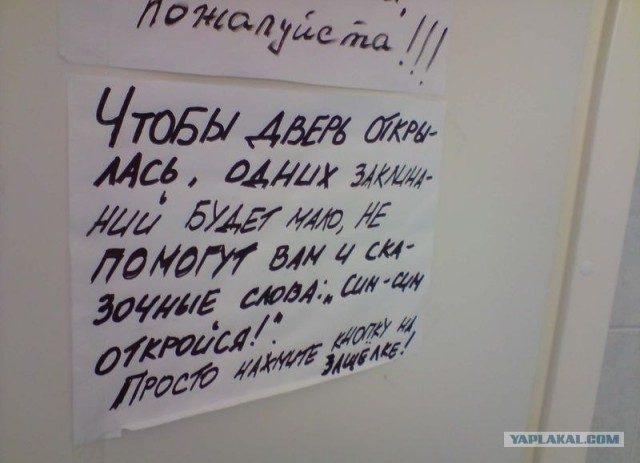 пожалуйста!!!
Чтобы дверь откры-
лась, одних заклина-
ний будет мало, не
помогут вам и ска-
зочные слова: „Сим-сим
откройся!".
Просто нажмите кнопку на
защёлке!
YAPLAKAL.COM